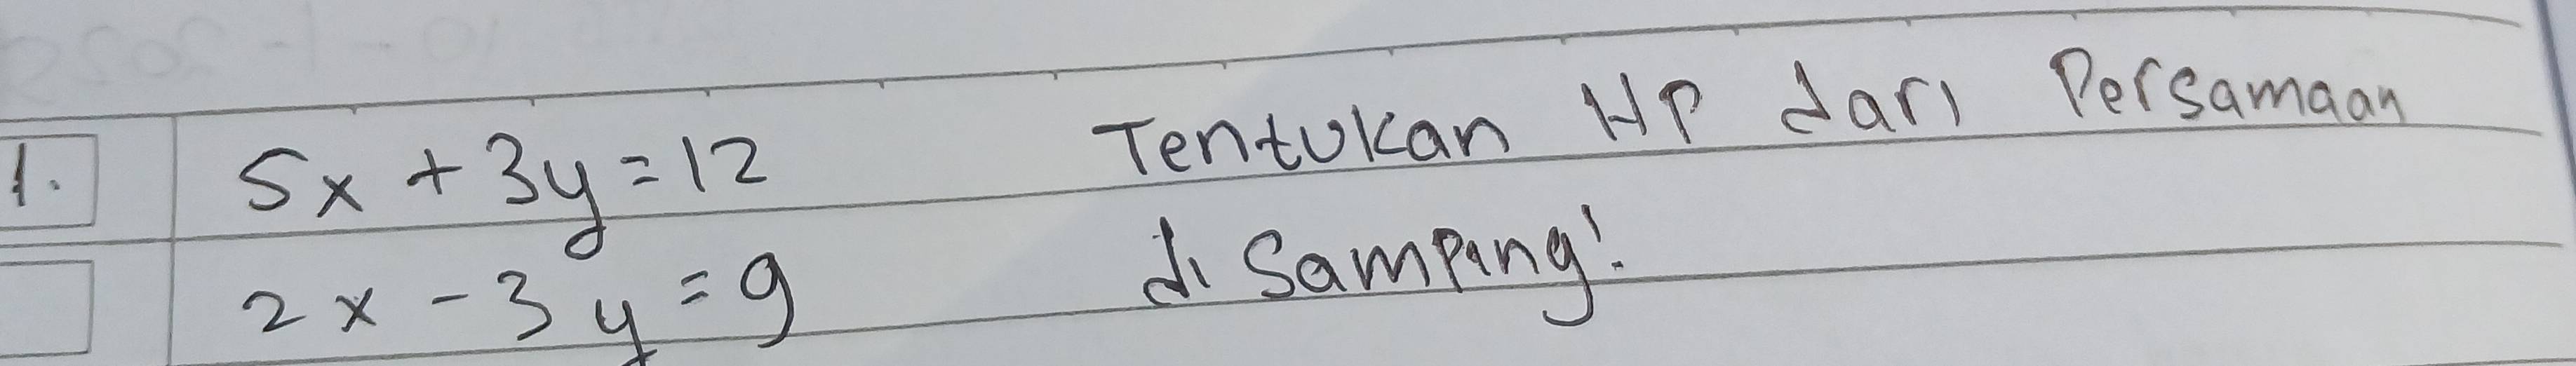 1. 5x + 3y = 12 Tentukan HP dari Persamaan
2x - 3y = 9 di samping!